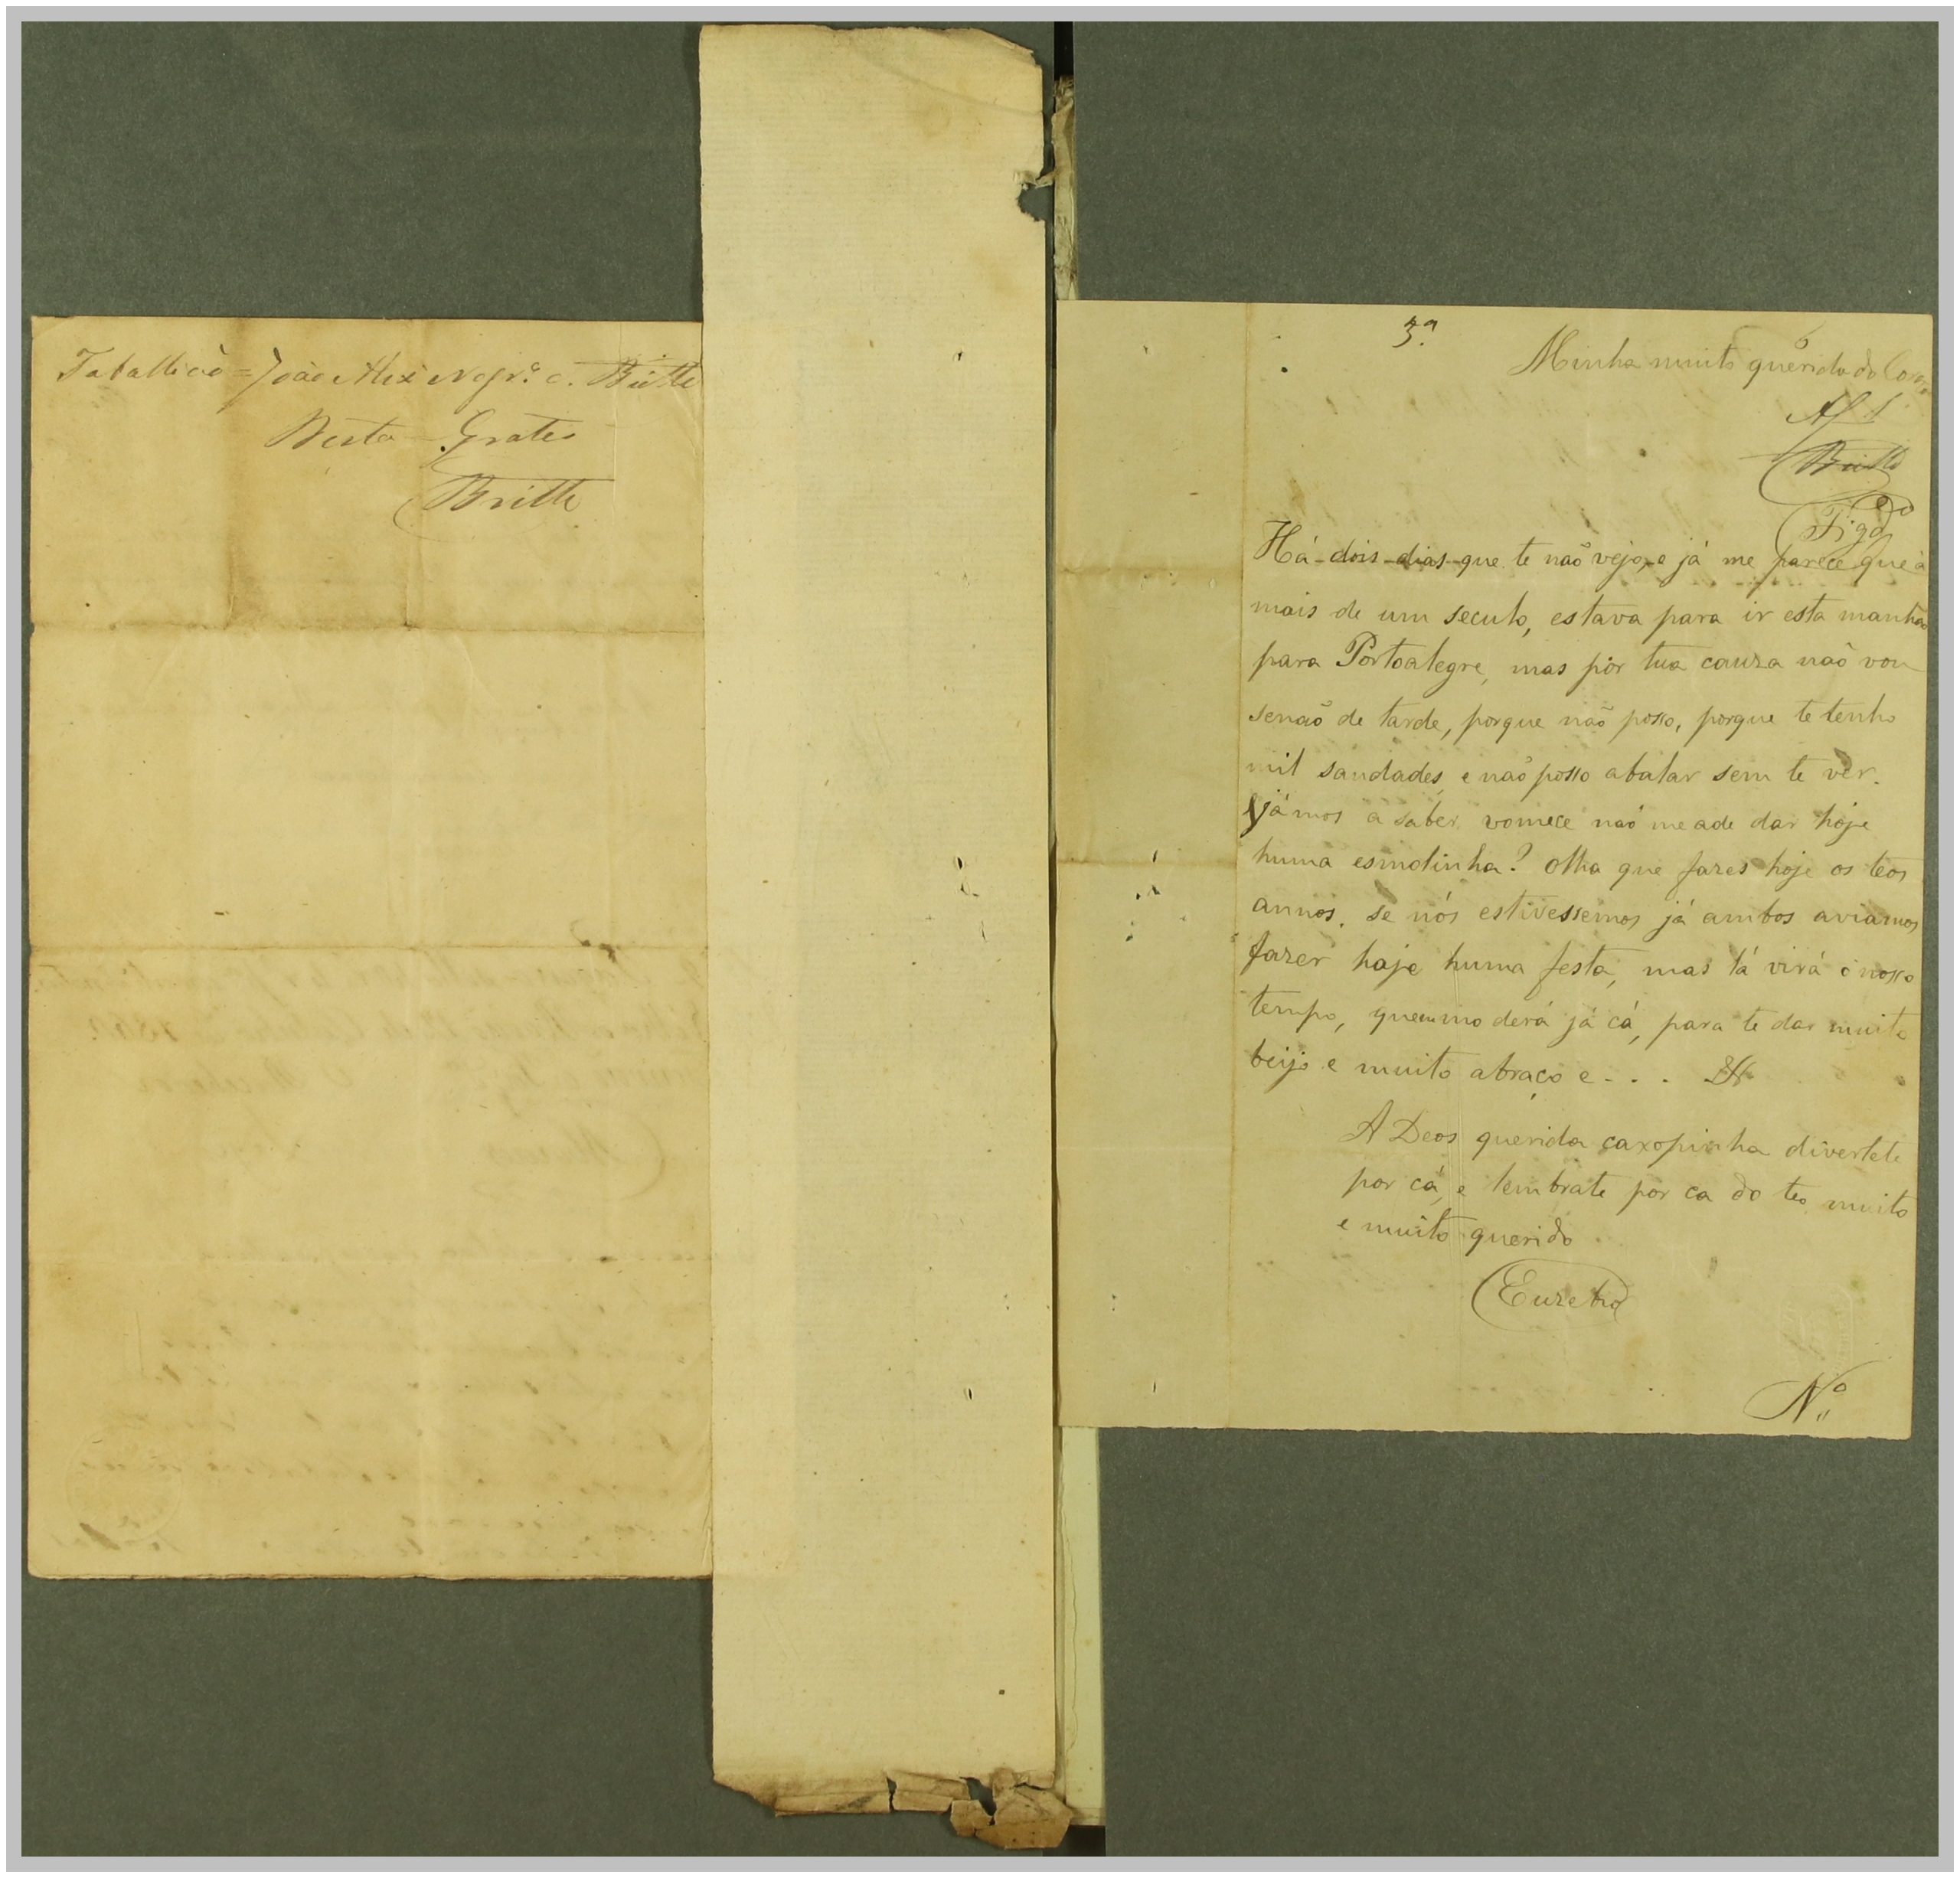 Taballião = João Alex Negr.º e. Britto
Desta = Gratis
Britto
3.ª
Minha muito querida do Coraç
Af 1
Britto
Figdo
Há dois dias que te naõ vejo, e já me parece que á
mais de um seculo, estava para ir esta manhão
para Portoalegre, mas por tua cauza naõ vou
senaõ de tarde, porque não posso, porque te tenho
mil saudades, e naõ posso abalar sem te ver.
Vjámos a saber, vomece naõ me ade dar hoje
huma esmolinha? olha que fazes hoje os teos
annos, se nós estivessemos já ambos aviamos
fazer hoje huma festa, mas lá virá o nosso
tempo, quem mo derá já cá, para te dar muito
beijo e muito abraço e - . .
A Deos querida caxopinha divertete
por cá, e lembrate por ca do teo muito
e muito querido
Euzebio
N.º